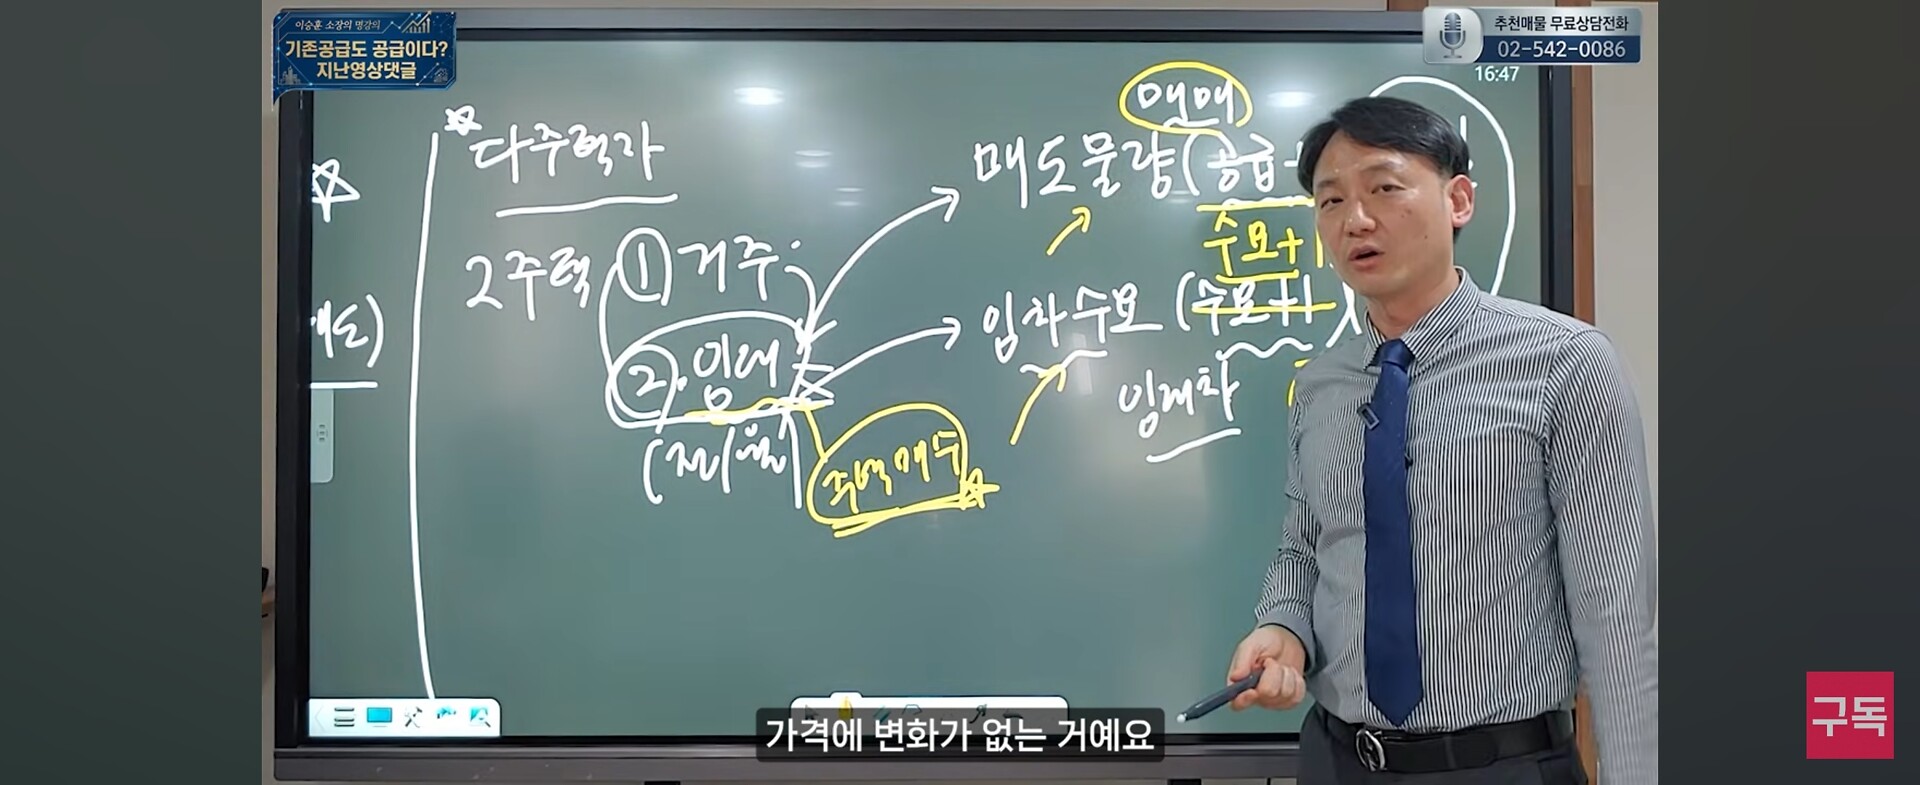 이승훈 소장의 명강의
기존공급도 공급이다?
지난영상댓글
추천매물 무료상담전화
02-542-0086
16:47
다주택자
2주택 ① 거주
② 임대
(전/월)
주택매수
매매
매도물량 (공급+
수요+1
임차수요 (수요+1)
임대차
가격에 변화가 없는 거예요
구독